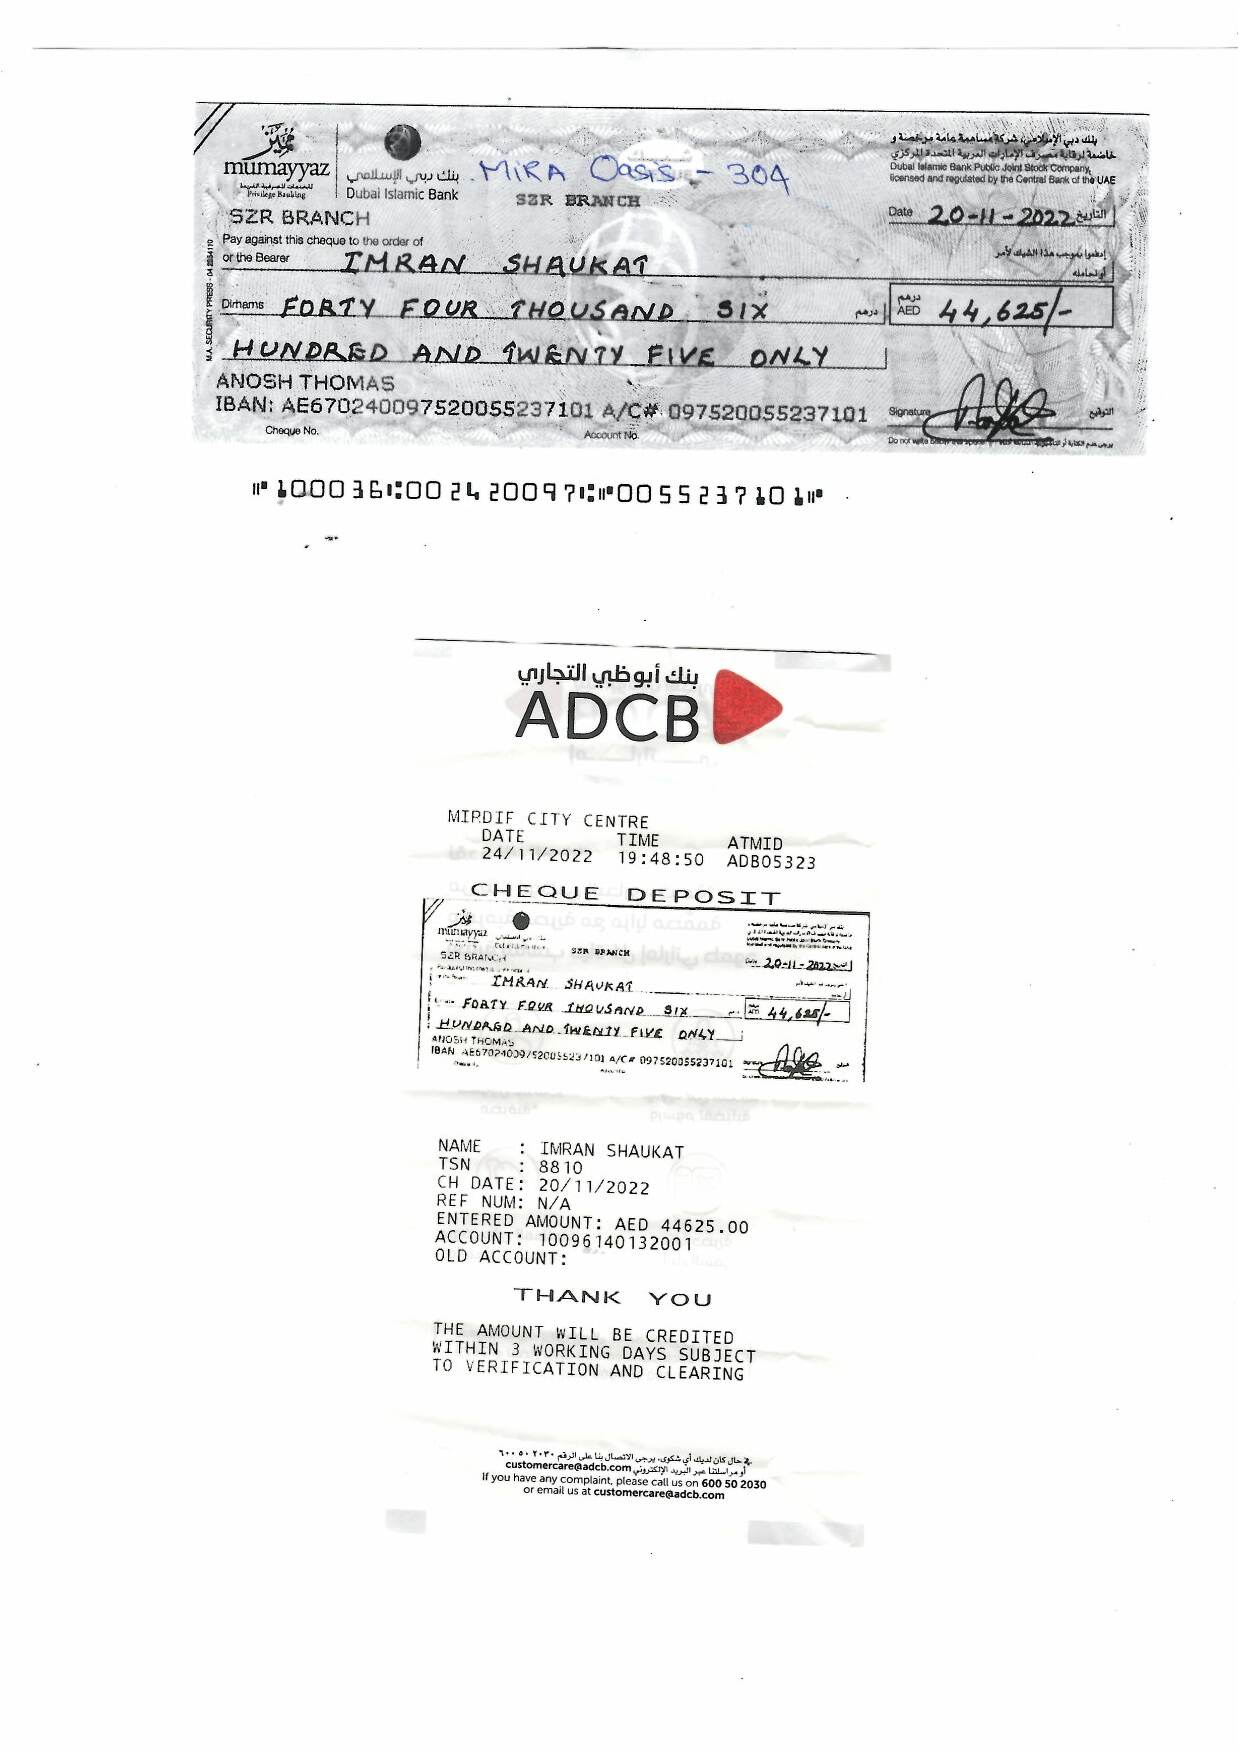 مميز
mumayyaz
الخدمات المصرفية المميزة
Privilege Banking
بنك دبي الإسلامي
Dubai Islamic Bank
MIRA Oasis - 304
SZR BRANCH
بنك دبي الإسلامي، شركة مساهمة عامة مرخصة و
خاضعة لرقابة مصرف الإمارات العربية المتحدة المركزي
Dubai Islamic Bank Public Joint Stock Company,
licensed and regulated by the Central Bank of the UAE
SZR BRANCH
Date 20-11-2022 التاريخ
Pay against this cheque to the order of
or the Bearer IMRAN SHAUKAT
إدفعوا بموجب هذا الشيك لأمر
أو لحامله
Dirhams FORTY FOUR THOUSAND SIX درهم
درهم
AED 44,625/-
HUNDRED AND TWENTY FIVE ONLY
ANOSH THOMAS
IBAN: AE670240097520055237101 A/C# 097520055237101
Signature التوقيع
Cheque No. Account No.
Do not write
100036 002420097 0055237101
بنك أبوظبي التجاري
ADCB
MIRDIF CITY CENTRE
DATE TIME ATMID
24/11/2022 19:48:50 ADB05323
CHEQUE DEPOSIT
mumayyaz
SZR BRANCH
SZR BRANCH
20-11-2022
IMRAN SHAUKAT
FORTY FOUR THOUSAND SIX
44,625/-
HUNDRED AND TWENTY FIVE ONLY
ANOSH THOMAS
A/C# 097520055237101
NAME : IMRAN SHAUKAT
TSN : 8810
CH DATE: 20/11/2022
REF NUM: N/A
ENTERED AMOUNT: AED 44625.00
ACCOUNT: 10096140132001
OLD ACCOUNT:
THANK YOU
THE AMOUNT WILL BE CREDITED
WITHIN 3 WORKING DAYS SUBJECT
TO VERIFICATION AND CLEARING
في حال كان لديك أي شكوى، يرجى الاتصال بنا على الرقم ٦٠٠ ٥٠ ٢٠٣٠
أو مراسلتنا عبر البريد الإلكتروني customercare@adcb.com
If you have any complaint, please call us on 600 50 2030
or email us at customercare@adcb.com